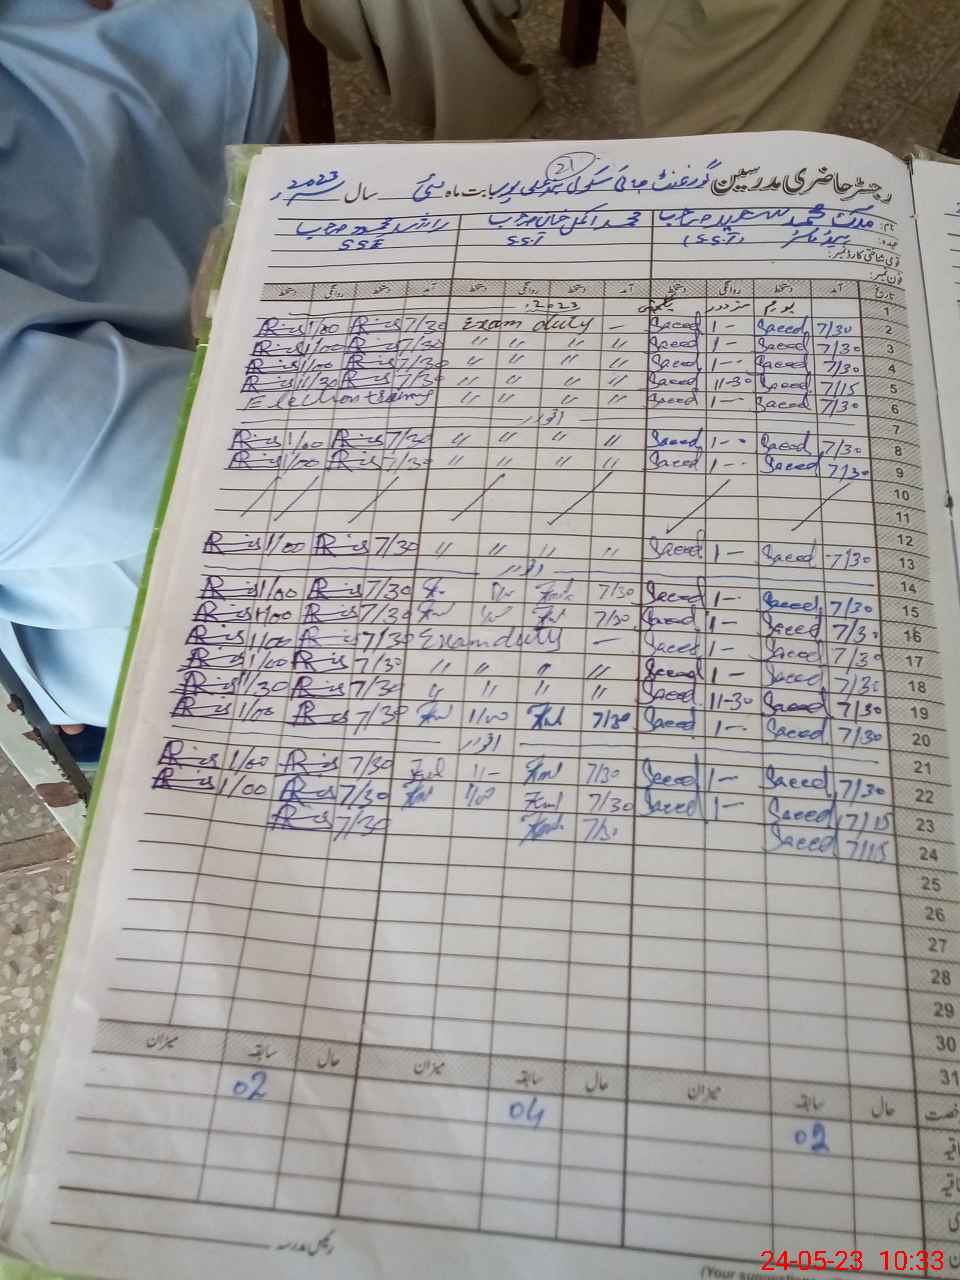 21
رجسٹر حاضری مدرسین گورنمنٹ ہائی سکول بابت ماہ مئی سال 2023ء
نام: ملک محمد سعید صاحب محمد اکمل خان صاحب راشد محمود صاحب
عہدہ: ہیڈ ماسٹر (S.S.T) S.S.T S.S.E
قومی شناختی کارڈ نمبر:
فون نمبر:
تاریخ آمد دستخط روانگی دستخط آمد دستخط روانگی دستخط آمد دستخط روانگی دستخط
1 یوم مزدور چھٹی 2023
2 7/30 Saeed 1- Saeed - Exam duty 7/30 1/00
3 7/30 Saeed 1- Saeed " " " " 7/30 1/00
4 7/30 Saeed 1-- Saeed " " " " 7/30 1/00
5 7/15 Saeed 11-30 Saeed " " " " 7/30 11/30
6 7/30 Saeed 1-- Saeed " " " " Election training
7 اتوار
8 7/30 Saeed 1-- Saeed " " " " 7/30 1/00
9 7/30 Saeed 1-- Saeed " " " " 7/30 1/00
10
11
12
13 7/30 Saeed 1- Saeed " " " " 7/30 1/00
14 اتوار
15 7/30 Saeed 1- Saeed 7/30 7/30 1/00
16 7/30 Saeed 1- Saeed 7/30 1/00 7/30 1/00
17 7/30 Saeed 1- Saeed - Exam duty 7/30 1/00
18 7/30 Saeed 1- Saeed " " " " 7/30 1/00
19 7/30 Saeed 11-30 Saeed " " " " 7/30 11/30
20 7/30 Saeed 1-- Saeed 7/30 1/00 7/30 1/00
21 اتوار
22 7/30 Saeed 1- Saeed 7/30 1/- 7/30 1/00
23 7/15 Saeed 1- Saeed 7/30 1/00 7/30 1/00
24 7/15 Saeed 7/30 7/30
25
26
27
28
29
30
31
حال سابقہ میزان حال سابقہ میزان حال سابقہ میزان
02 04 02
رئیس مدرسہ
(Your
24-05-23 10:33